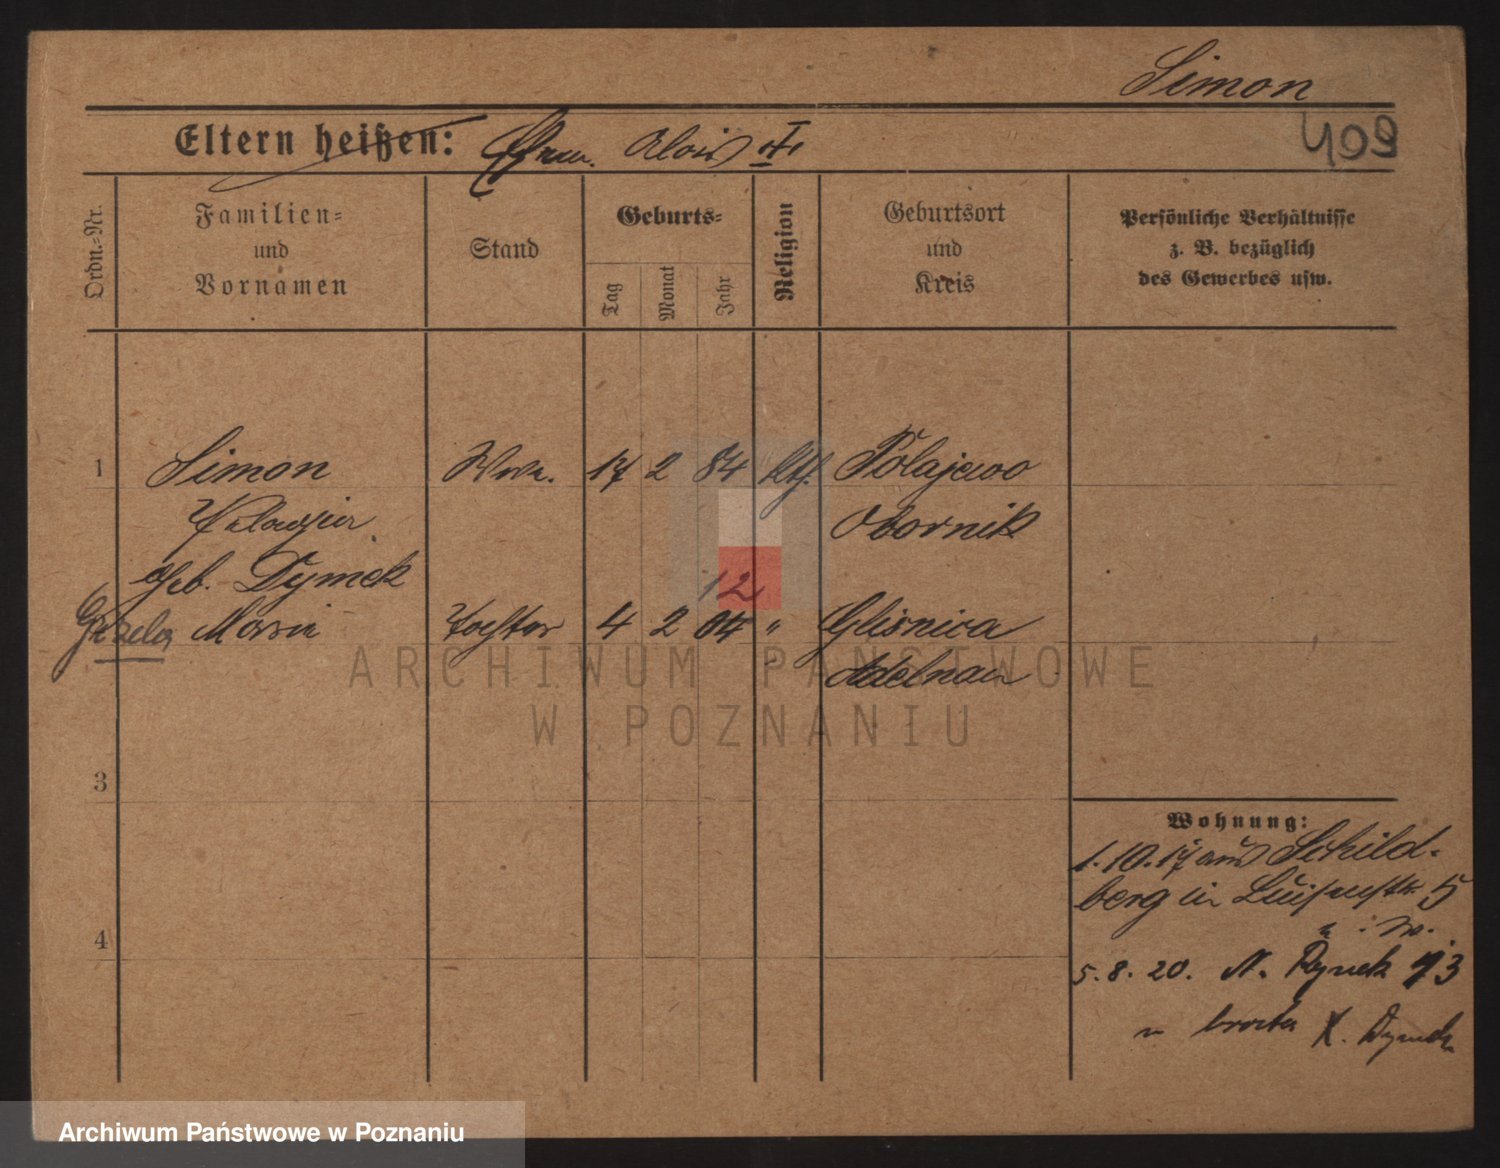 Simon
409
Eltern heißen: Ehem. Alois †
Ordn.=Nr.
Familien=
und
Vornamen
Stand
Geburts=
Tag
Monat
Jahr
Religion
Geburtsort
und
Kreis
Persönliche Verhältnisse
z. B. bezüglich
des Gewerbes usw.
1 Simon Wwe. 17 2 84 kth. Polajewo
Pelagia Obornik
geb. Dymek
12
Gizela Maria Tochter 4 2 04 " Glisnica
Adelnau
3
4
Wohnung:
1.10.17 aus Schild-
berg in Luisenstr. 5
5.8.20. N. Rynek 73
u brata X. Dymek
ARCHIWUM PAŃSTWOWE
W POZNANIU
Archiwum Państwowe w Poznaniu